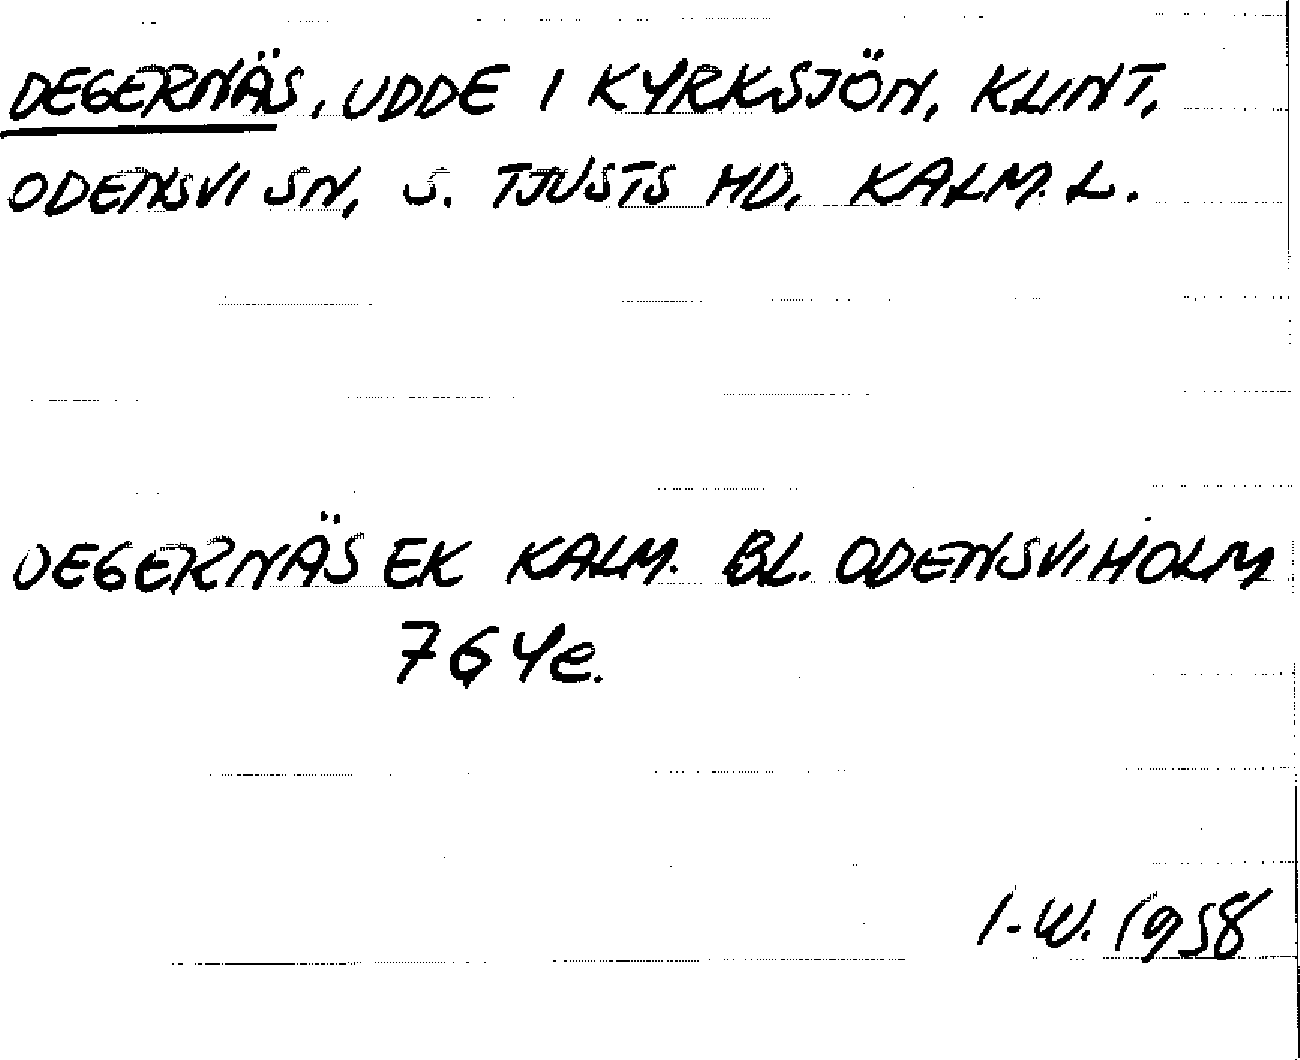 DEGERNÄS, UDDE I KYRKSJÖN, KLINT,
ODENSVI SN, S. TJUSTS HD, KALM. L.
DEGERNÄS EK KALM. BL. ODENSVIHOLM
764e.
I-W. 1958